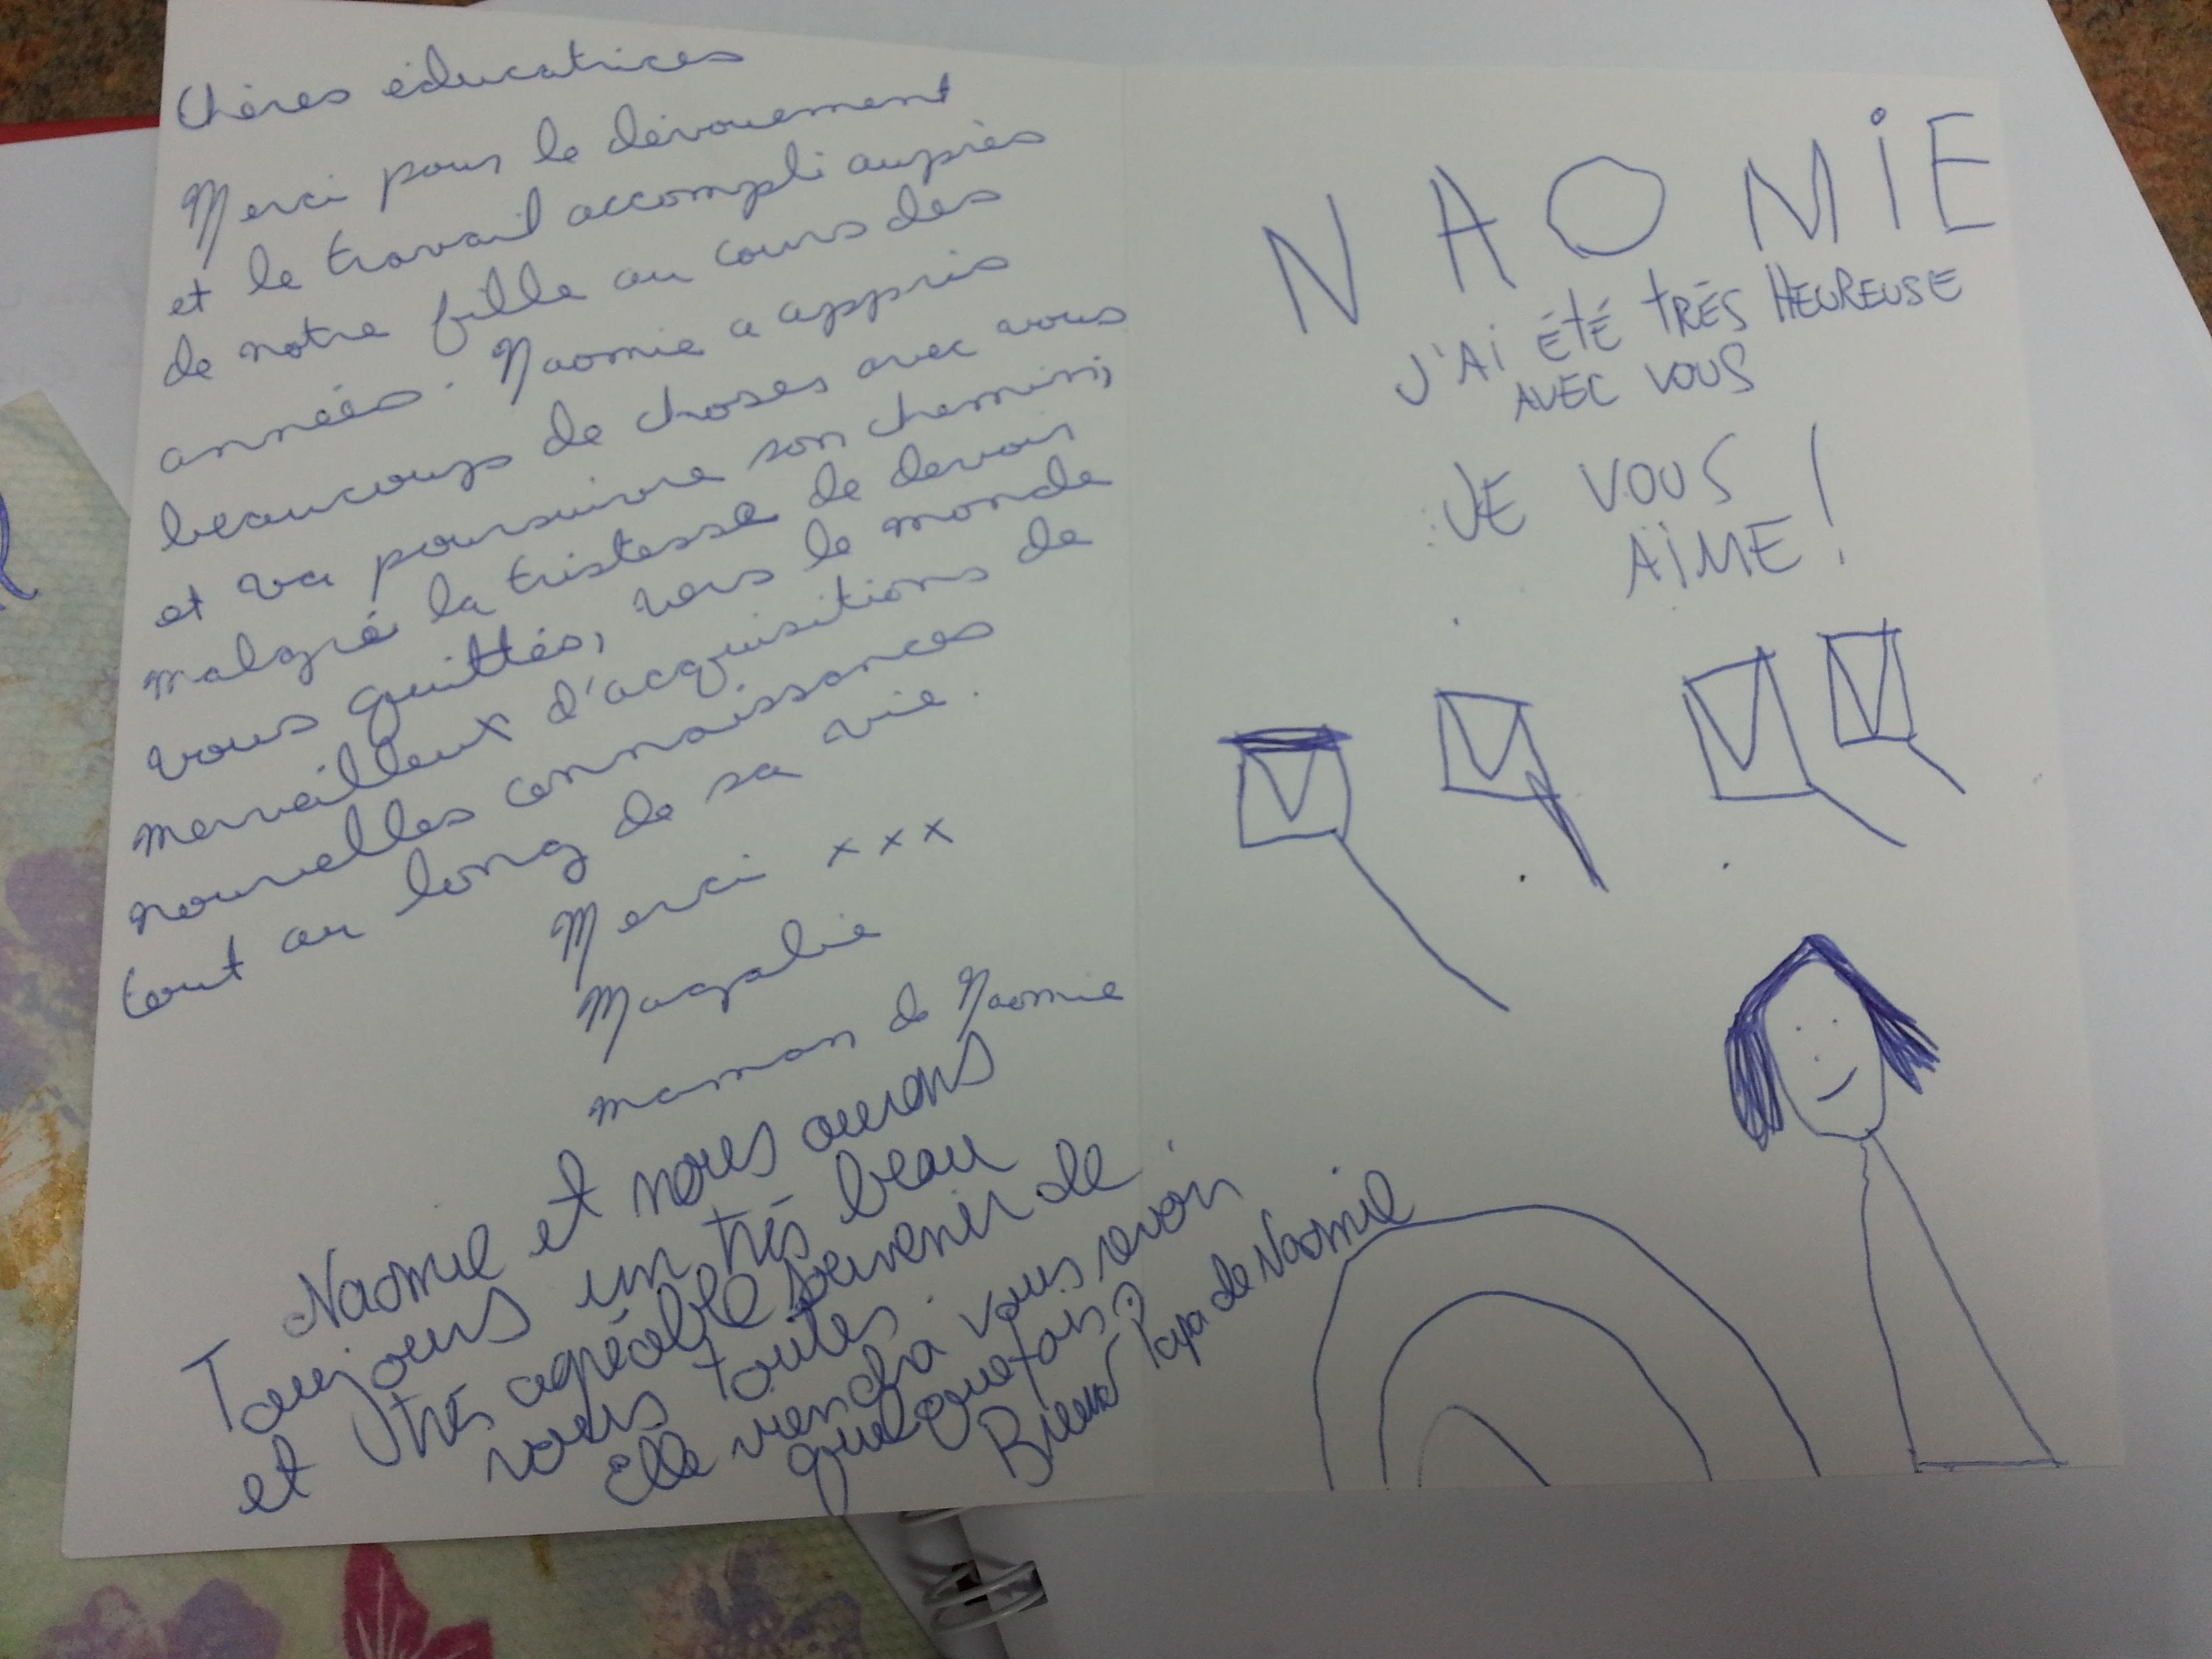 Chères éducatrices
Merci pour le dévouement
et le travail accompli auprès
de notre fille au cours des
années. Naomie a appris
beaucoup de choses avec vous
et va poursuivre son chemin,
malgré la tristesse de devoir
vous quittés, vers le monde
merveilleux d'acquisitions de
nouvelles connaissances
tout au long de sa vie.
Merci xxx
Magalie
maman de Naomie
Naomie et nous aurons
Toujours un très beau
et très agréable souvenir de
vous toutes.
Elle viendra vous revoir
quelquefois?
Papa de Naomie
NAOMiE
J'Ai ÉtÉ tRÉS HEUREUSE
AVEC VOUS
JE VOUS
AÏME!